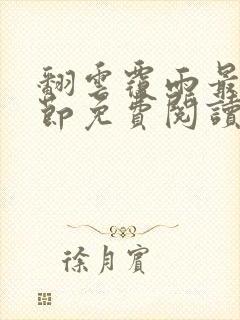 翻雲覆雨最
節免費閱讀
徐月賓